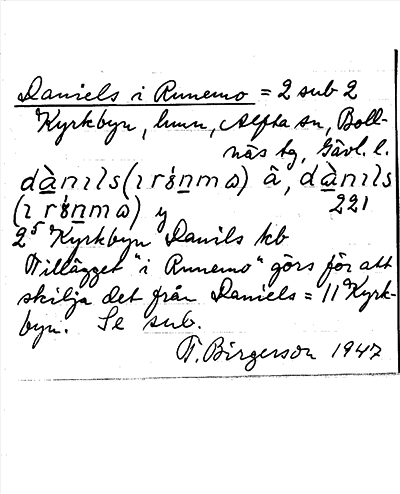 Daniels i Runemo = 2 sub 2
Kyrkbyn, hmn, Alfta sn, Boll-
näs tg, Gävl. l.
dànıls (ı rǿnmω) â, dànıls
(ı rǿnmω) y 221
2⁵ Kyrkbyn Danils kb
Tillägget "i Runemo" görs för att
skilja det från Daniels = 11 Kyrk-
byn. Se sub.
T. Birgerson 1947